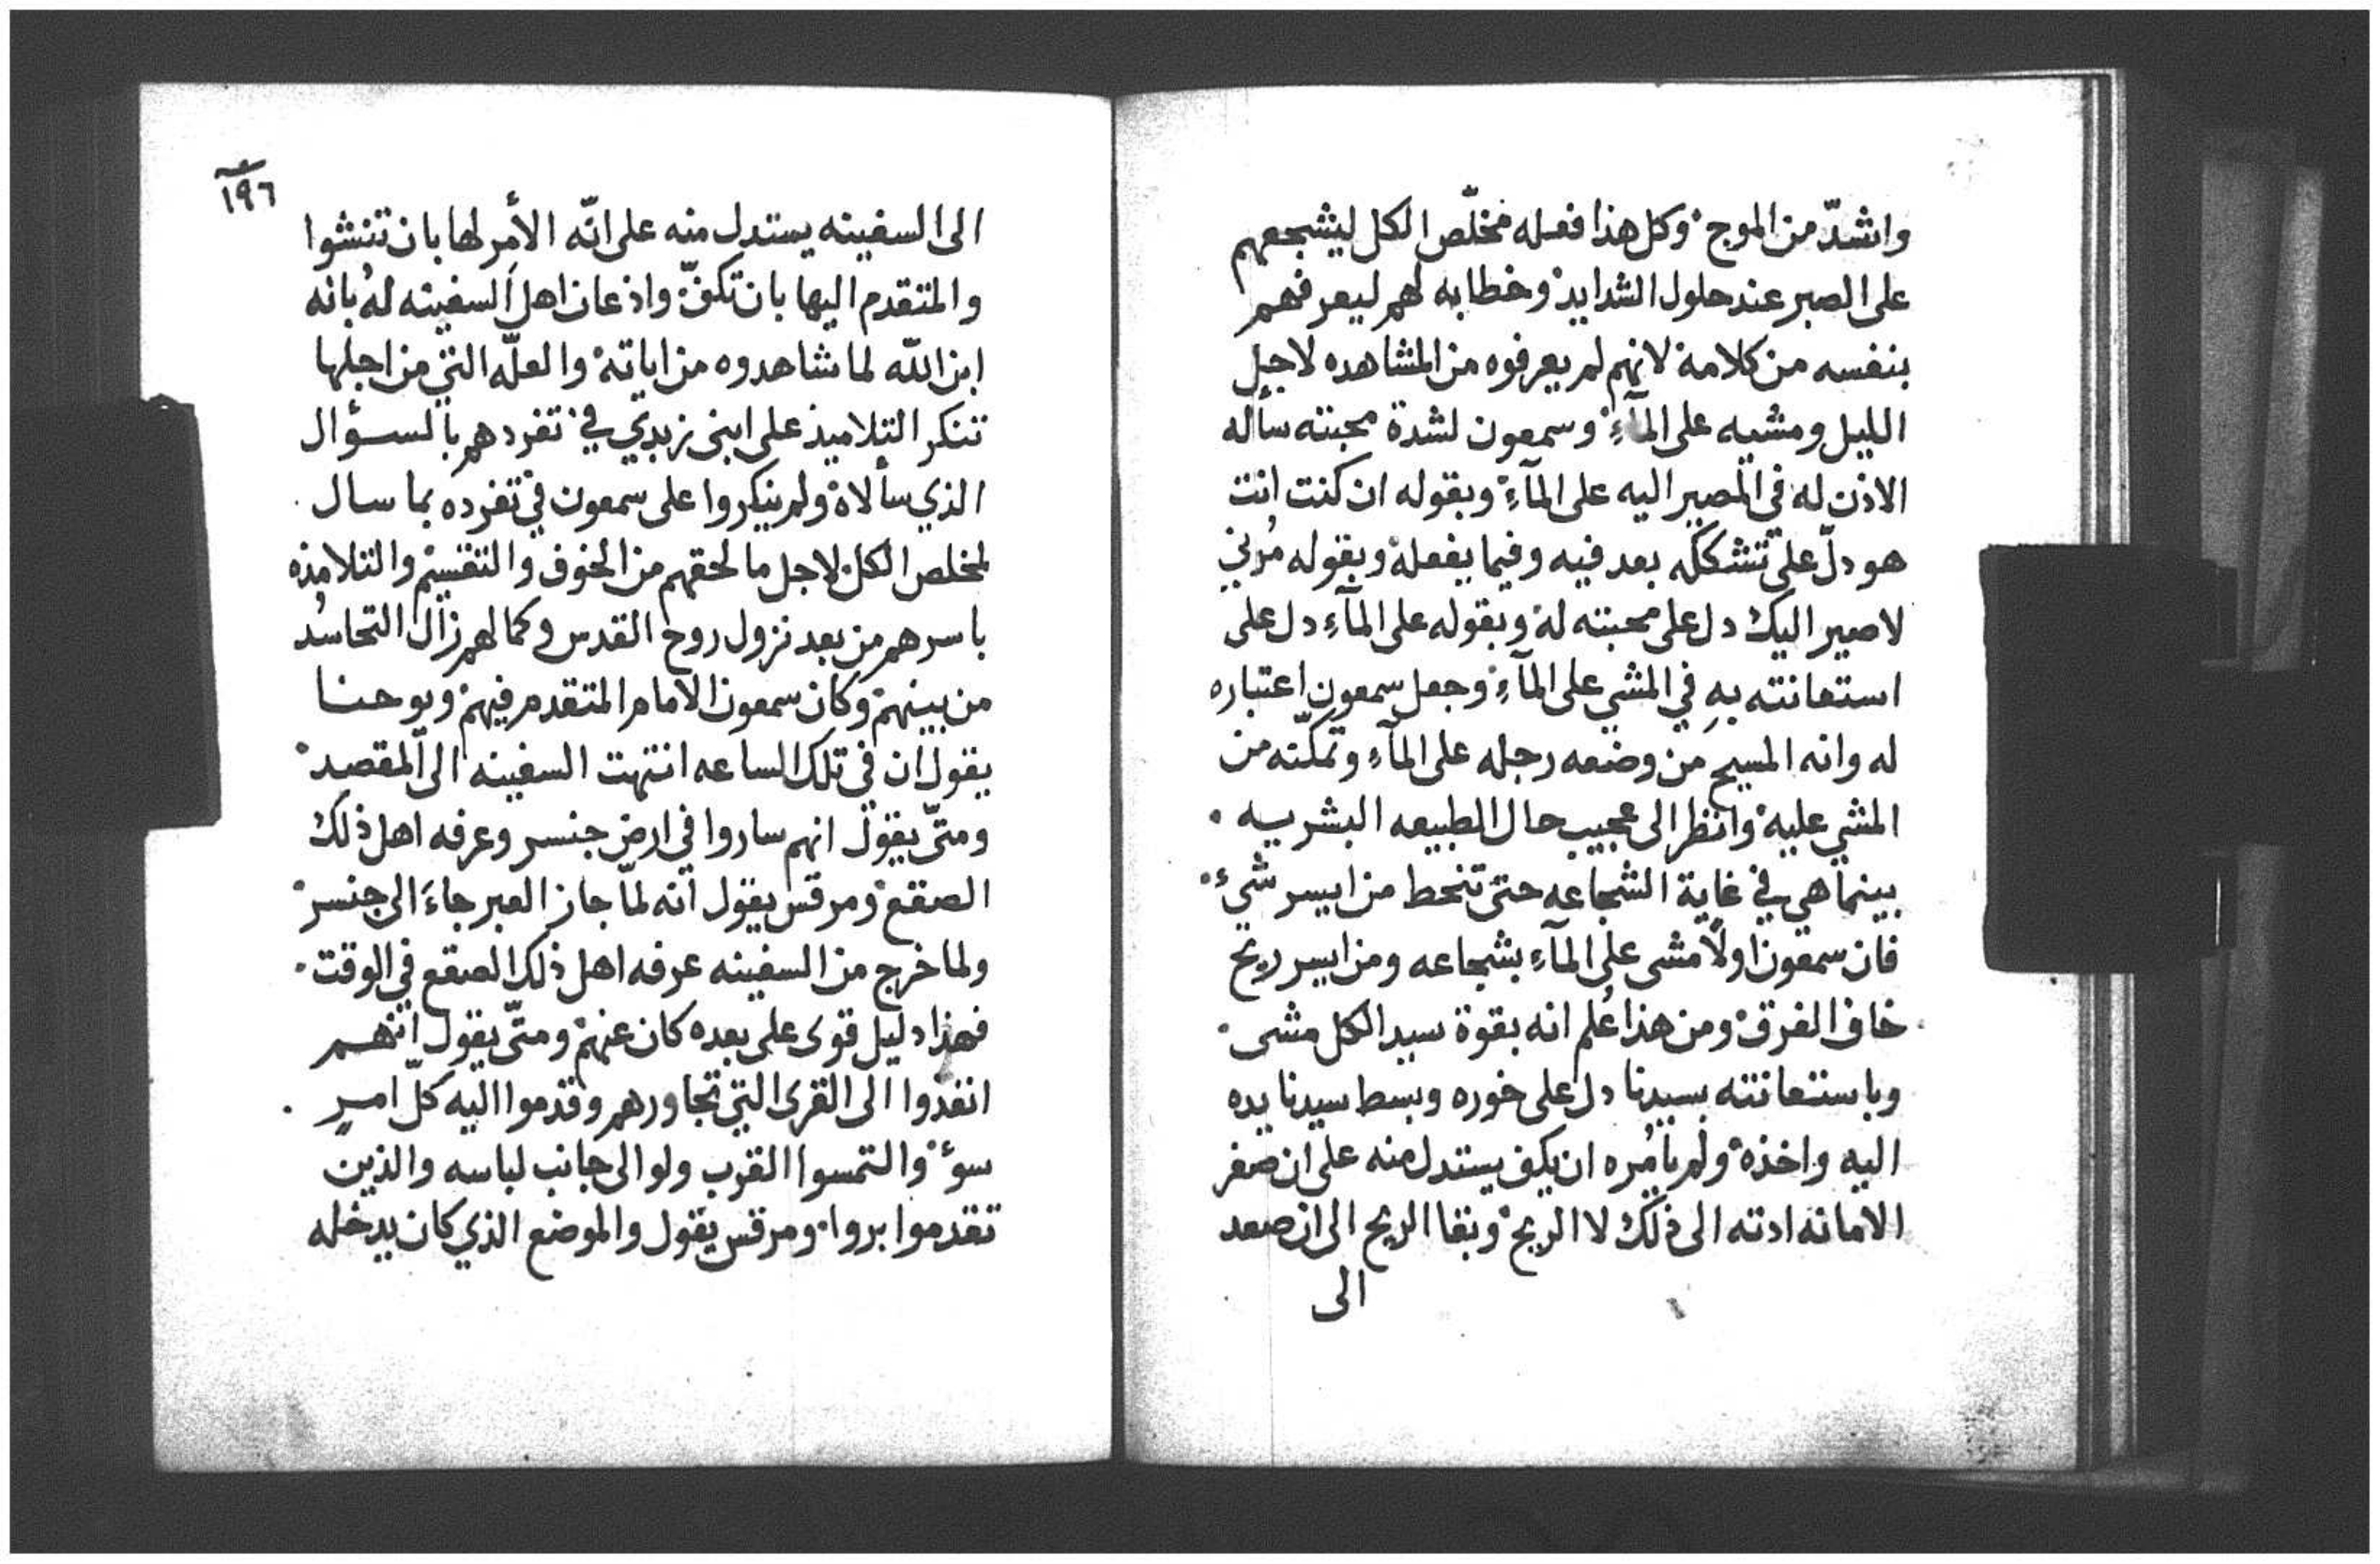 واشدّ من الموج وكل هذا فعله مخلّص الكل ليشجعهم
على الصبر عند حلول الشدايد وخطابه لهم ليعرفهم
بنفسه من كلامه لانهم لم يعرفوه من المشاهده لاجل
الليل ومشيه على المآءِ وسمعون لشدة محبته سأله
الاذن له في المصير اليه على المآءِ وبقوله ان كنت انت
هو دلّ على تشككه بعد فيه وفيما يفعله وبقوله مُرني
لاصير اليك دل على محبته له وبقوله على المآءِ دل على
استعانته بهِ في المشي على المآءِ وجعل سمعون اعتباره
له وانه المسيح من وضعه رجله على المآءِ وتمكّنه من
المشي عليه وانظر الى عجيب حال الطبيعه البشريه
بينما هي في غاية الشجاعه حتى تنحط من ايسر شيء
فان سمعون اولًا مشى على المآءِ بشجاعه ومن ايسر ريح
خاف الغرق ومن هذا عُلم انه بقوة سيد الكل مشى
وباستعانته بسيدنا دل على خوره وبسط سيدنا يده
اليه واخذه ولم يامُره ان يكف يستدل منه على ان صغر
الامانه ادته الى ذلك لا الريح وبقا الريح الى ان صعد
الى
١٩٦
الى السفينه يستدل منه على انّه الأمر لها بان تنشوا
والمتقدم اليها بان تكفّ واذعان اهل السفينه لهُ بانه
ابن اللّه لما شاهدوه من اياته والعلّه التي من اجلها
تنكر التلاميذ على ابنى زبدي في تفردهم بالسؤال
الذي سألاه ولم ينكروا على سمعون في تفرده بما سال
لمخلص الكل لاجل ما لحقهم من الخوف والتقسيم والتلامذه
باسرهم من بعد نزول روح القدس وكمالهم زال التحاسُد
من بينهم وكان سمعون الامام المتقدم فيهم ويوحنا
يقول ان في تلك الساعه انتهت السفينه الى المقصد
ومتّى يقول انهم ساروا في ارض جنسر وعرفه اهل ذلك
الصقع ومرقس يقول انه لمّا جاز العبر جاءَ الى جنسر
ولما خرج من السفينه عرفه اهل ذلك الصقع في الوقت
فهذا دليل قوى على بعده كان عنهم ومتّى يقول انهم
انفذوا الى القرى التي تجاورهم وقدموا اليه كلّ امرٍ
سوء والتمسوا القرب ولو الى جانب لباسه والذين
تقدموا بروا ومرقس يقول والموضع الذي كان يدخله